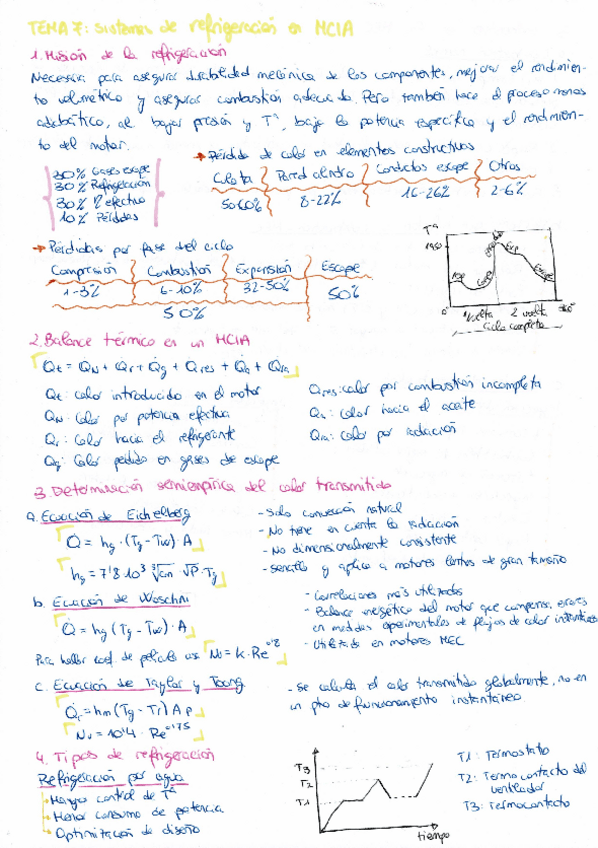 TEMA 7: Sistemas de refrigeración en MCIA
1. Misión de la refrigeración
Necesaria para asegurar durabilidad mecánica de los componentes, mejorar el rendimien-
to volumétrico y asegurar combustión adecuada. Pero también hace el proceso menos
adiabático, al bajar presión y Tª, baja la potencia específica y el rendimien-
to del motor.
30% Gases escape
30% Refrigeración
30% η efectivo
10% Pérdidas
→ Pérdida de calor en elementos constructivos
Culata Pared cilindro Conductos escape Otros
50-60% 8-22% 16-26% 2-6%
→ Pérdidas por fase del ciclo
Compresión Combustión Expansión Escape
1-3% 6-10% 32-50% 50%
50%
Tª
Adm Comp Exp Escape
0° 1 vuelta 2 vuelta
Ciclo completo
2. Balance térmico en un MCIA
Q̇t = Q̇N + Q̇r + Q̇g + Q̇res + Q̇a + Q̇ra
Qt: calor introducido en el motor
QN: Calor por potencia efectiva
Qr: Calor hacia el refrigerante
Qg: Calor perdido en gases de escape
Qres: calor por combustión incompleta
Qa: Calor hacia el aceite
Qra: Calor por radiación
3. Determinación semiempírica del calor transmitido
a. Ecuación de Eichelberg
Q̇ = hg · (Tg - Tw) · A
hg = 7'8 10³ ∛cm √P·Tg
- Solo convección natural
- No tiene en cuenta la radiación
- No dimensionalmente consistente
- Sencilla y aplica a motores lentos de gran tamaño
b. Ecuación de Woschni
Q̇ = hg (Tg - Tw) · A
Para hallar coef. de película usa Nu = k · Re⁰'⁸
- Correlaciones más utilizadas
- Balance energético del motor que compensa errores
en medidas experimentales de flujos de calor instantáneos
- Utilizada en motores MEC
c. Ecuación de Taylor y Toong
Q̇r = hm (Tg - Tr) Ap
Nu = 10'4 · Re⁰'⁷⁵
- Se calcula el calor transmitido globalmente, no en
un pto de funcionamiento instantáneo
4. Tipos de refrigeración
Refrigeración por agua
- Mayor control de Tª
- Menor consumo de potencia
- Optimización de diseño
T3
T2
T1
tiempo
T1: Termostato
T2: Termo contacto del
ventilador
T3: Termocontacto